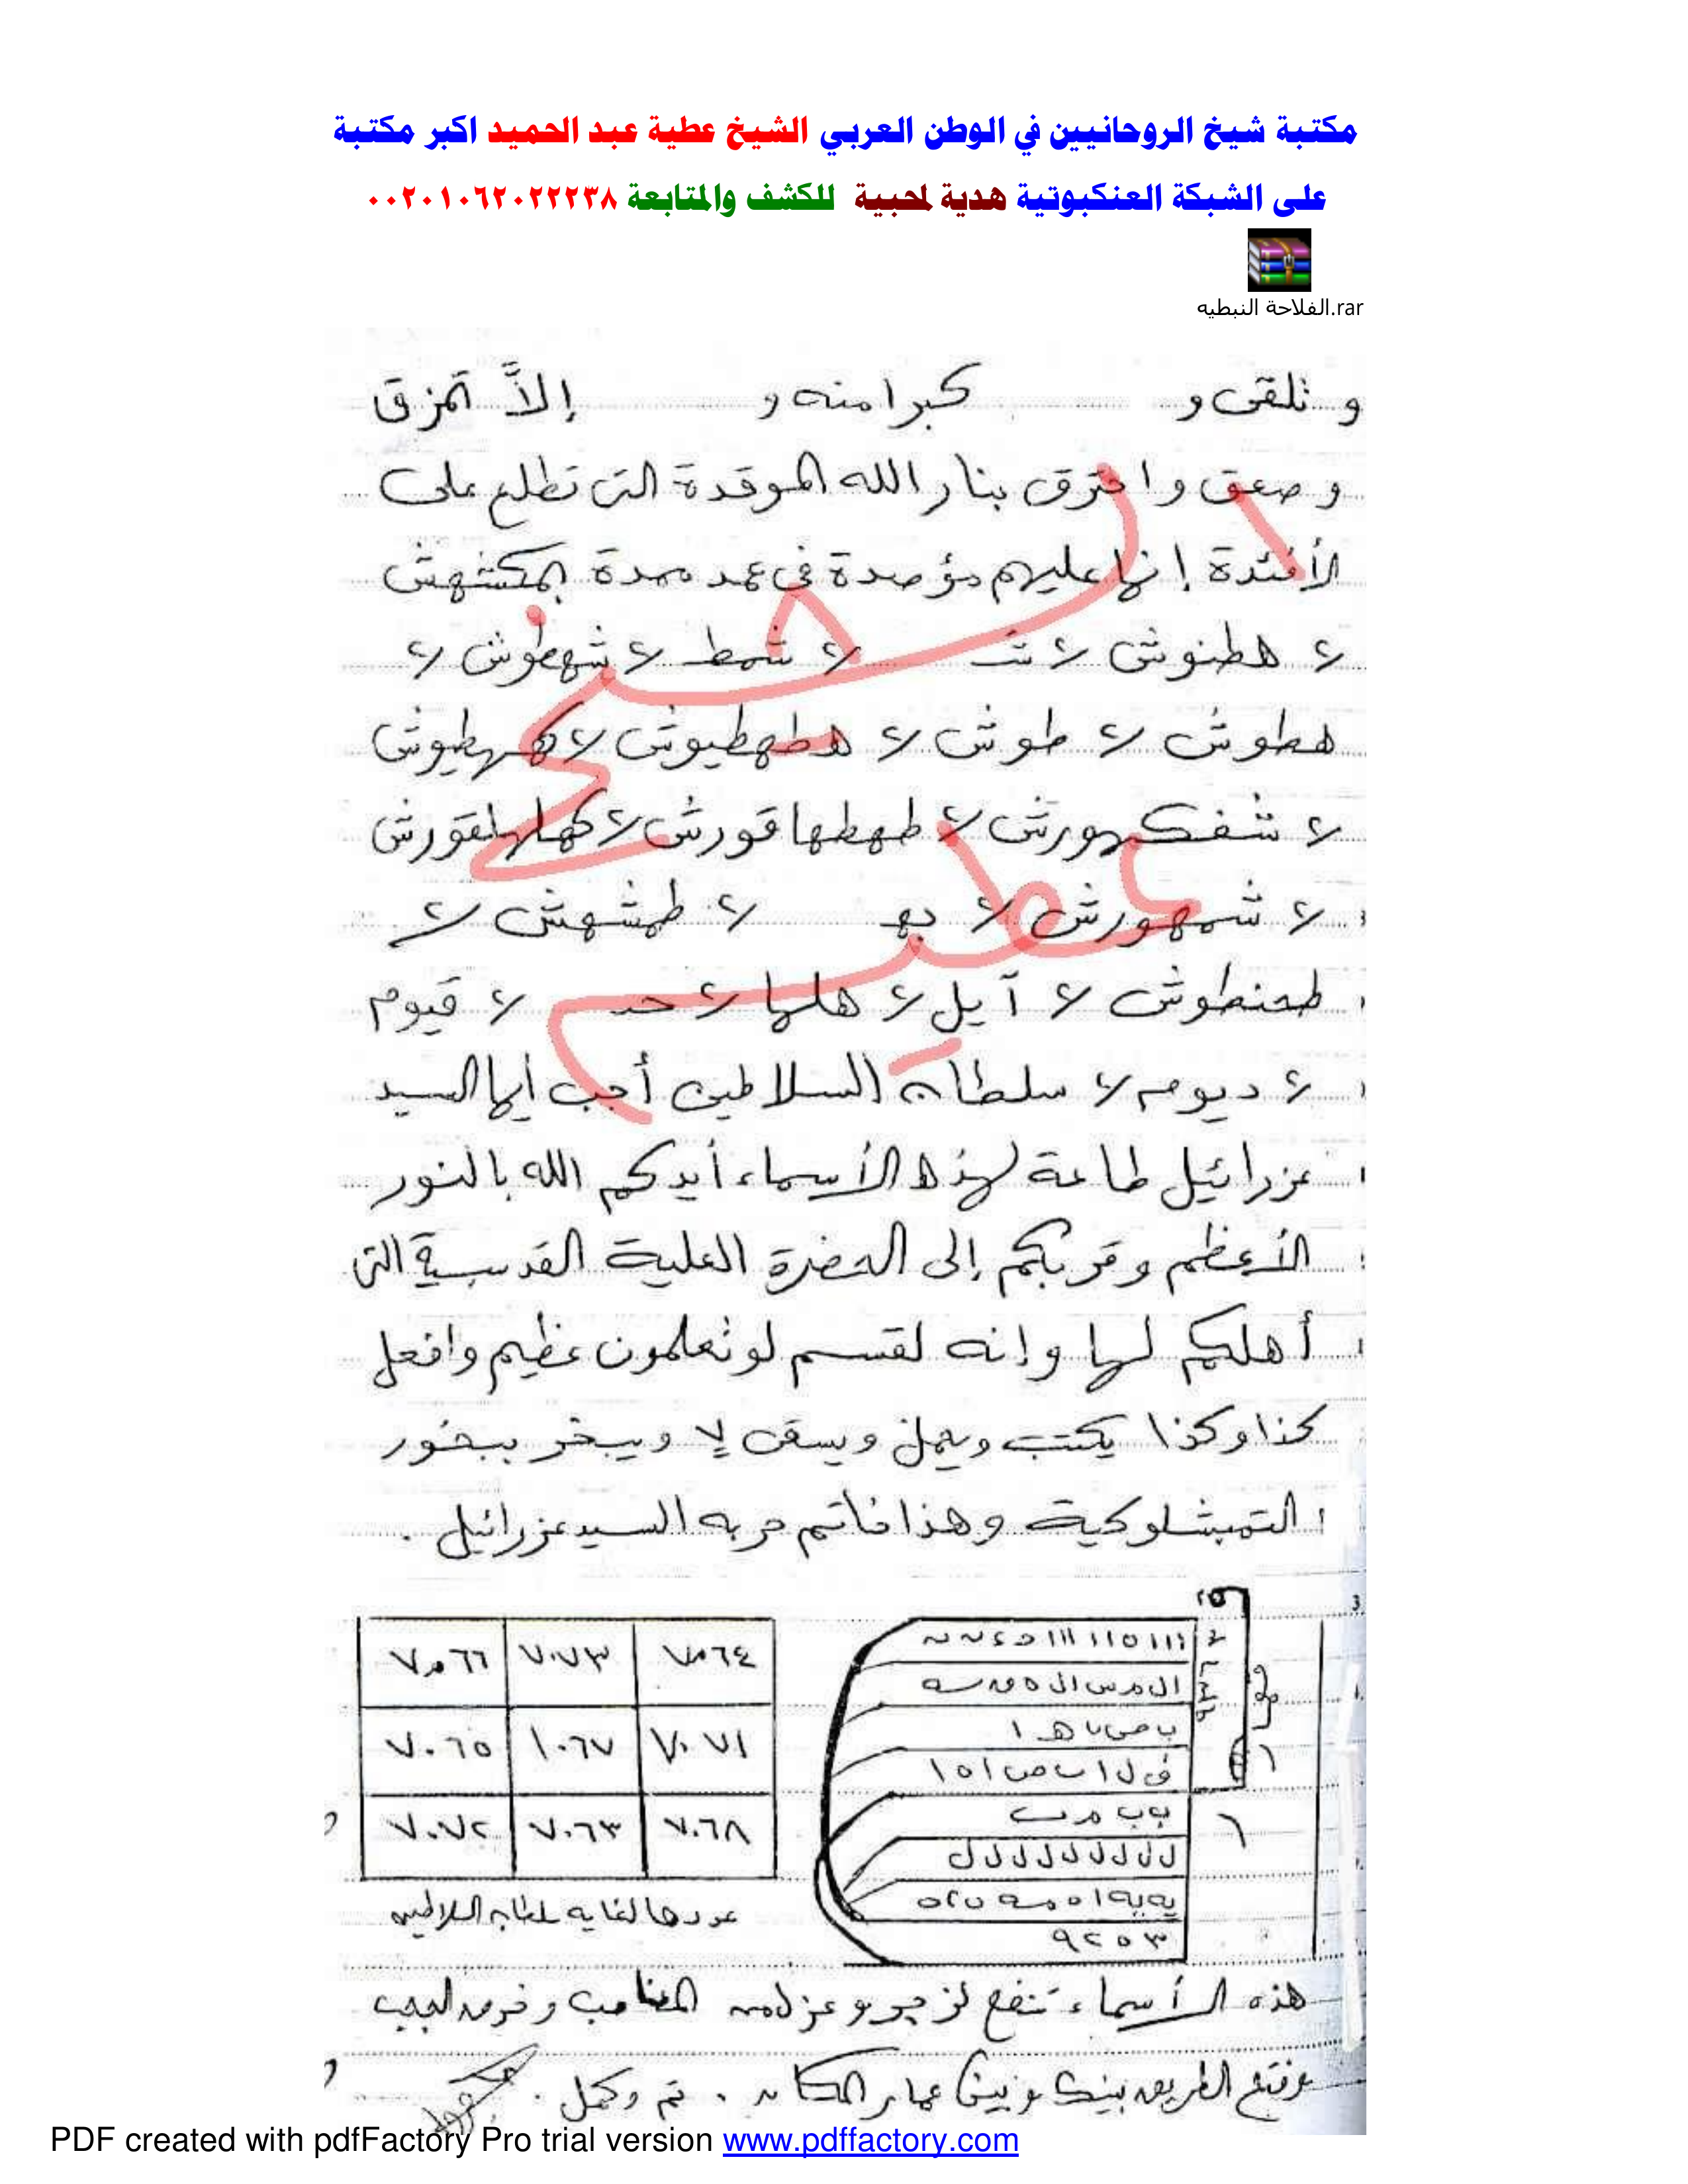 مكتبة شيخ الروحانيين في الوطن العربي الشيخ عطية عبد الحميد اكبر مكتبة
على الشبكة العنكبوتية هدية لمحبية للكشف والمتابعة ٠٠٢٠١٠٦٢٠٢٢٢٣٨
الفلاحة النبطيه.rar
و تلقى و كبرا منه و إلاَّ تمزق
و صعق و احترق بنار الله الموقدة التى تطلع على
الأفئدة إنها عليهم مؤصدة فى عمد ممدة بمكشهش
٧ هطنوش ٧ شـ ٧ شمط ٧ شهطوش ٧
هطوش ٧ طوش ٧ هطهطيوش ٧ كهطيوش
٧ طهطها قورش ٧
٧ شمهورش ٧ بهـ ٧ طمشهش ٧
طحنطوش ٧ آيل ٧ هلها ٧ حـ ٧ قيوم
٧ ديوم ٧ سلطان السلاطين أجب أيها السيد
عزرائيل طاعة لهذه الأسماء أيدكم الله بالنور
الأعظم وقربكم إلى الحضرة العلية القدسية التى
أهلكم لها وإنه لقسم لو تعلمون عظيم وافعل
كذا وكذا يكتب ويحمل ويسقى لا ويبخر ببخور
التمبشلوكية وهذا خاتم حربه السيد عزرائيل .
٧٠٦٤ ٧٠٧٣ ٧٠٦٦
٧٠٧١ ١٠٦٧ ٧٠٦٥
٧٠٦٨ ٧٠٦٣ ٧٠٧٢
ل ل ل ل ل ل ل ل ل
٣ ٥ ٢ ٩
سلطان السلاطين
هذه الأسماء تنفع لزجر و عزل من المناصب و
وفتح الطريق بينك وبين عمار المكان . تم وكمل .
PDF created with pdfFactory Pro trial version www.pdffactory.com